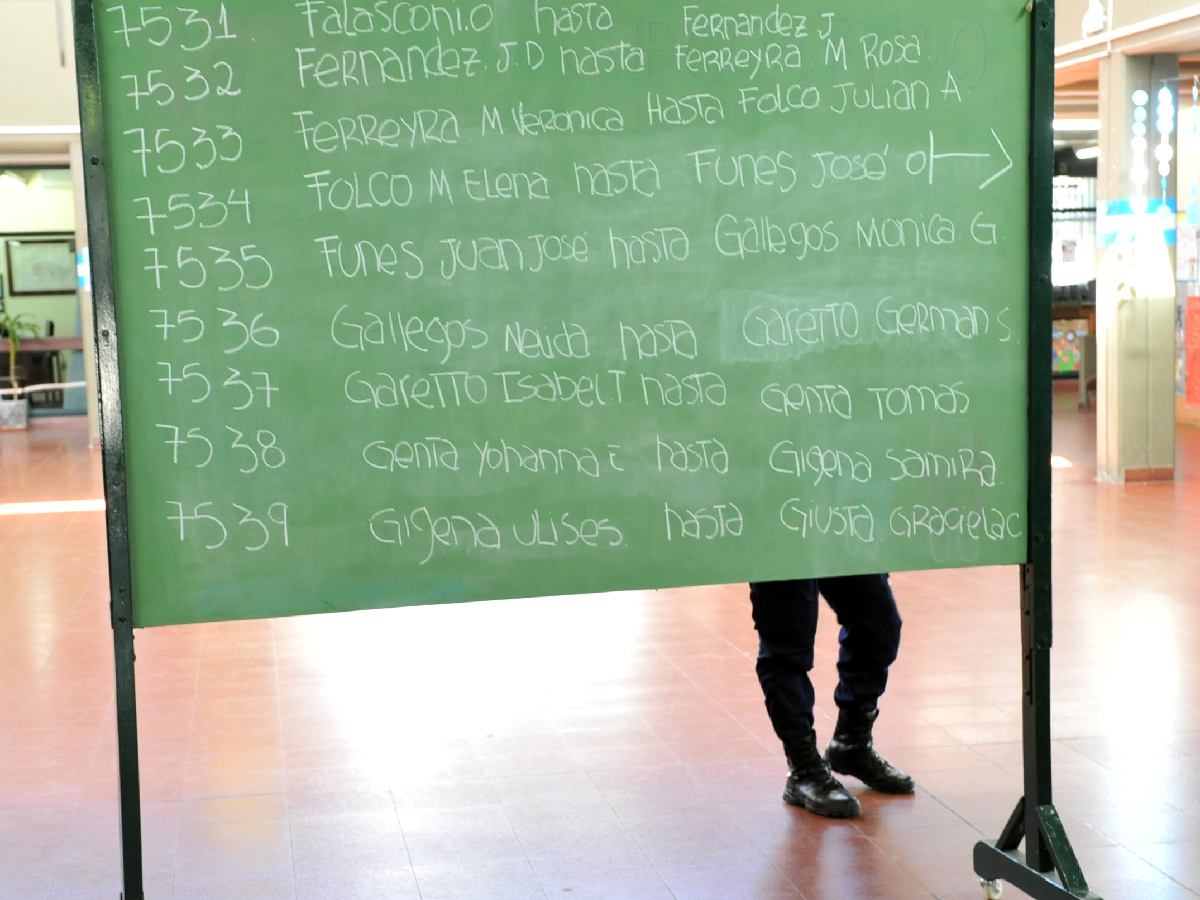 7531. Falasconi.O hasta Fernandez J
7532 Fernandez. J.D hasta Ferreyra M Rosa.
7533 Ferreyra M Veronica Hasta Folco Julian A
7534 Folco M Elena hasta Funes José O
7535 Funes Juan José hasta Gallegos Monica G.
7536 Gallegos Nelida hasta Garetto German S.
7537 Garetto Isabel.T hasta Genta Tomas
7538 Genta Yohanna E hasta Gigena Samira.
7539 Gigena Ulises. hasta Giusta Graciela C